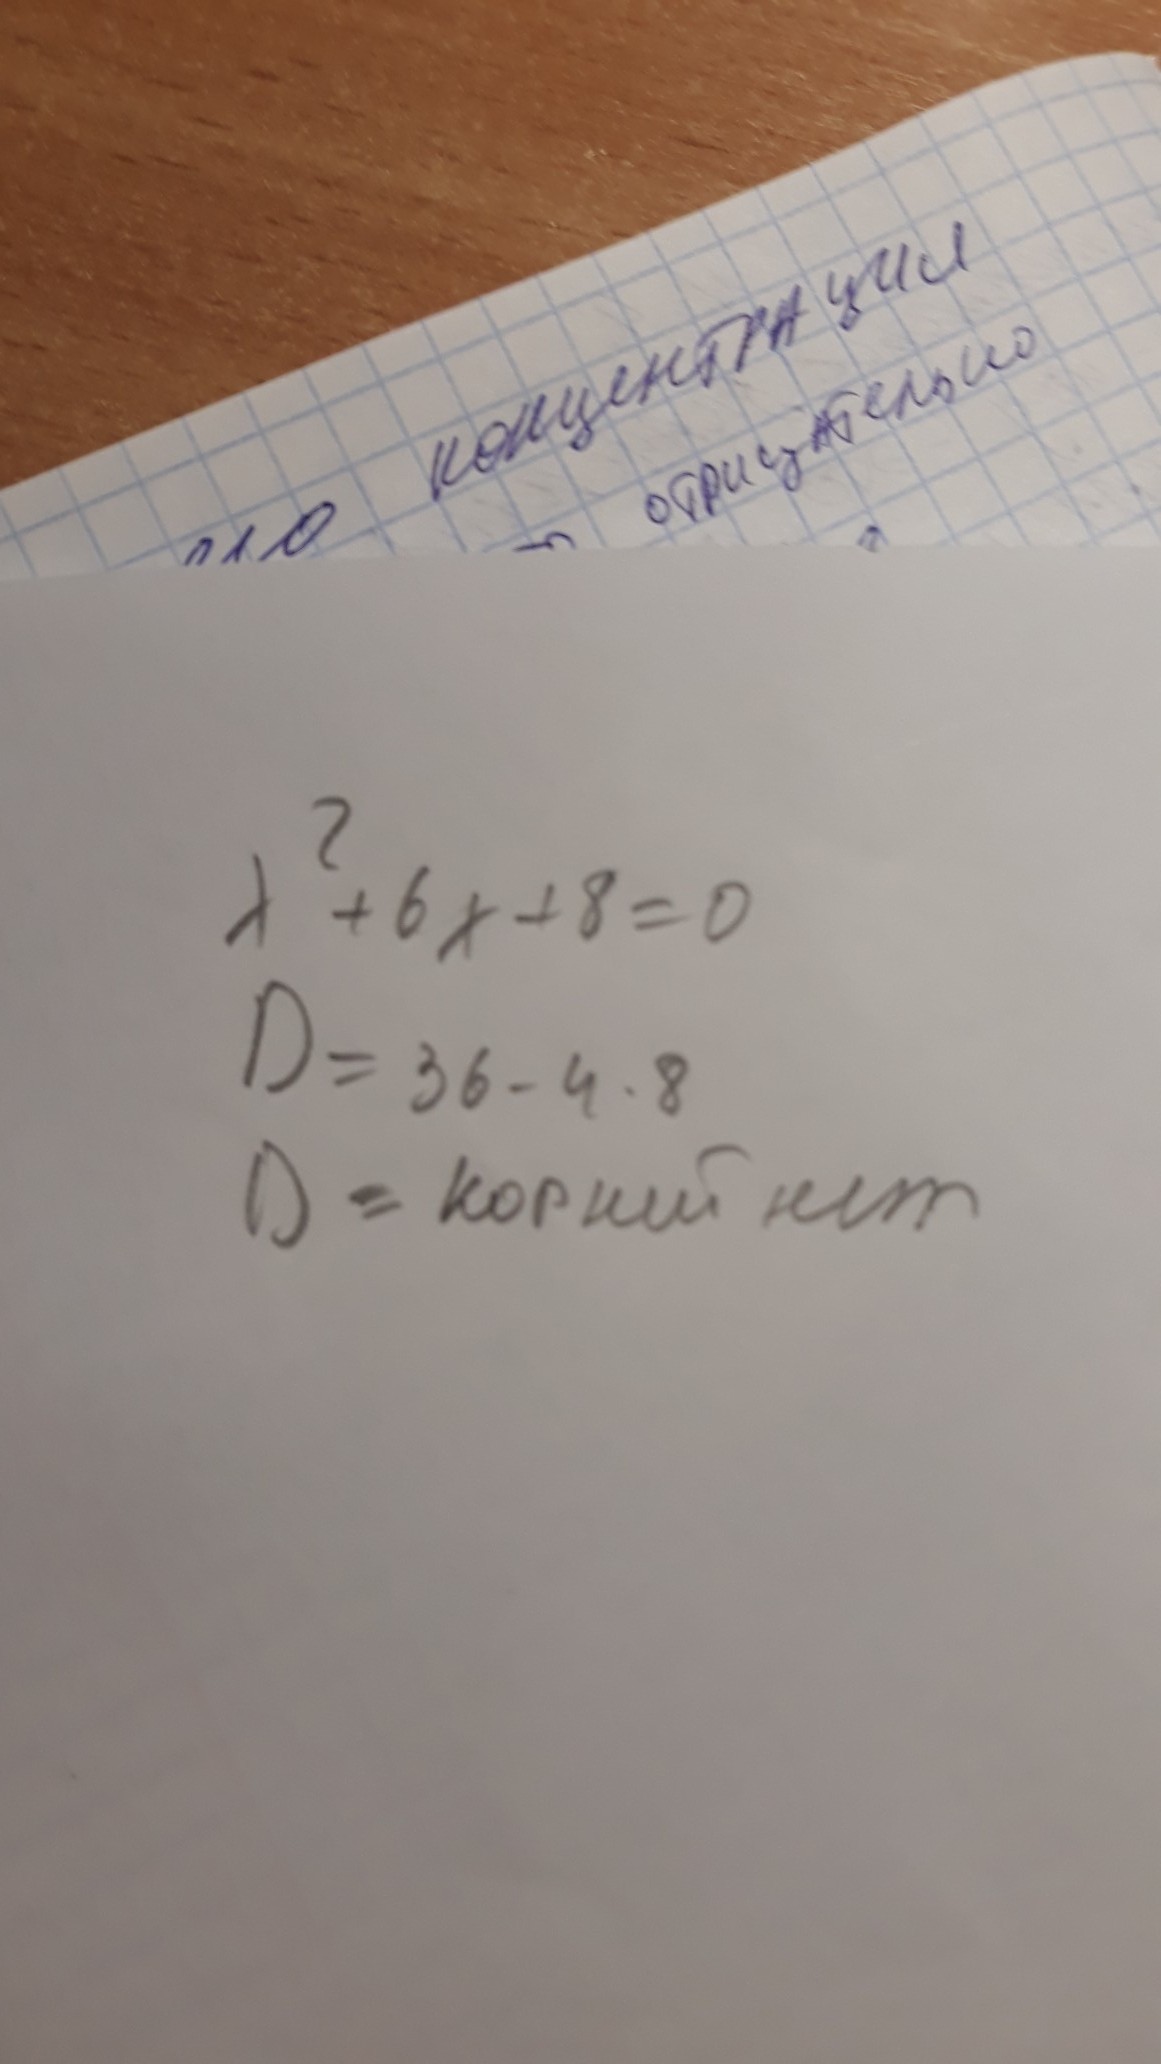 концентрация
отрицательно
x²+6x+8=0
D=36-4·8
D=корний нет